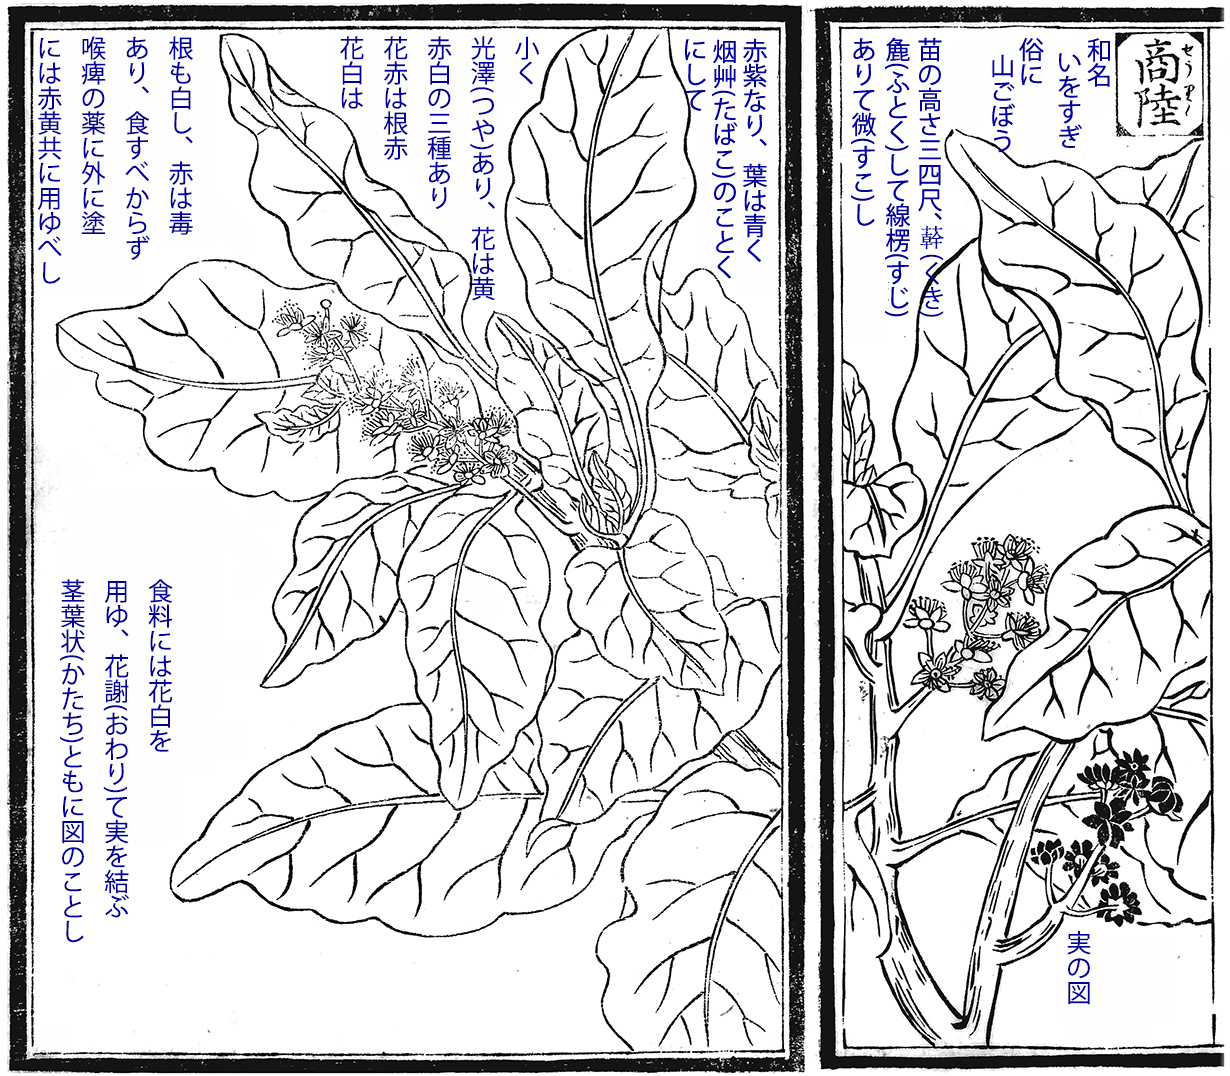 商陸
和名
いをすぎ
俗に
山ごぼう
苗の高さ三四尺、幹(くき)
麁(ふとく)して線楞(すじ)
ありて微(すこ)し
実の図
赤紫なり、葉は青く
烟艸(たばこ)のことく
にして
小く
光澤(つや)あり、花は黄
赤白の三種あり
花赤は根赤
花白は
根も白し、赤は毒
あり、食すべからず
喉痺の薬に外に塗
には赤黄共に用ゆべし
食料には花白を
用ゆ、花謝(おわり)て実を結ぶ
茎葉状(かたち)ともに図のことし